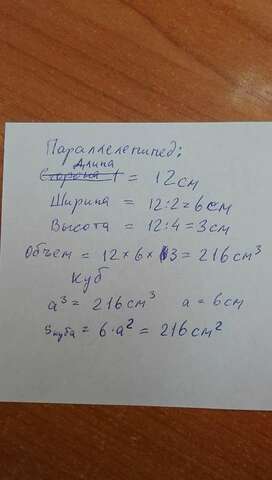 Параллелепипед:
Длина
Сторона 1 = 12см
Ширина = 12:2=6см
Высота = 12:4=3см
Объем = 12×6×3=216см³
Куб
a³ = 216см³ a=6см
Sкуба = 6·a² = 216см²